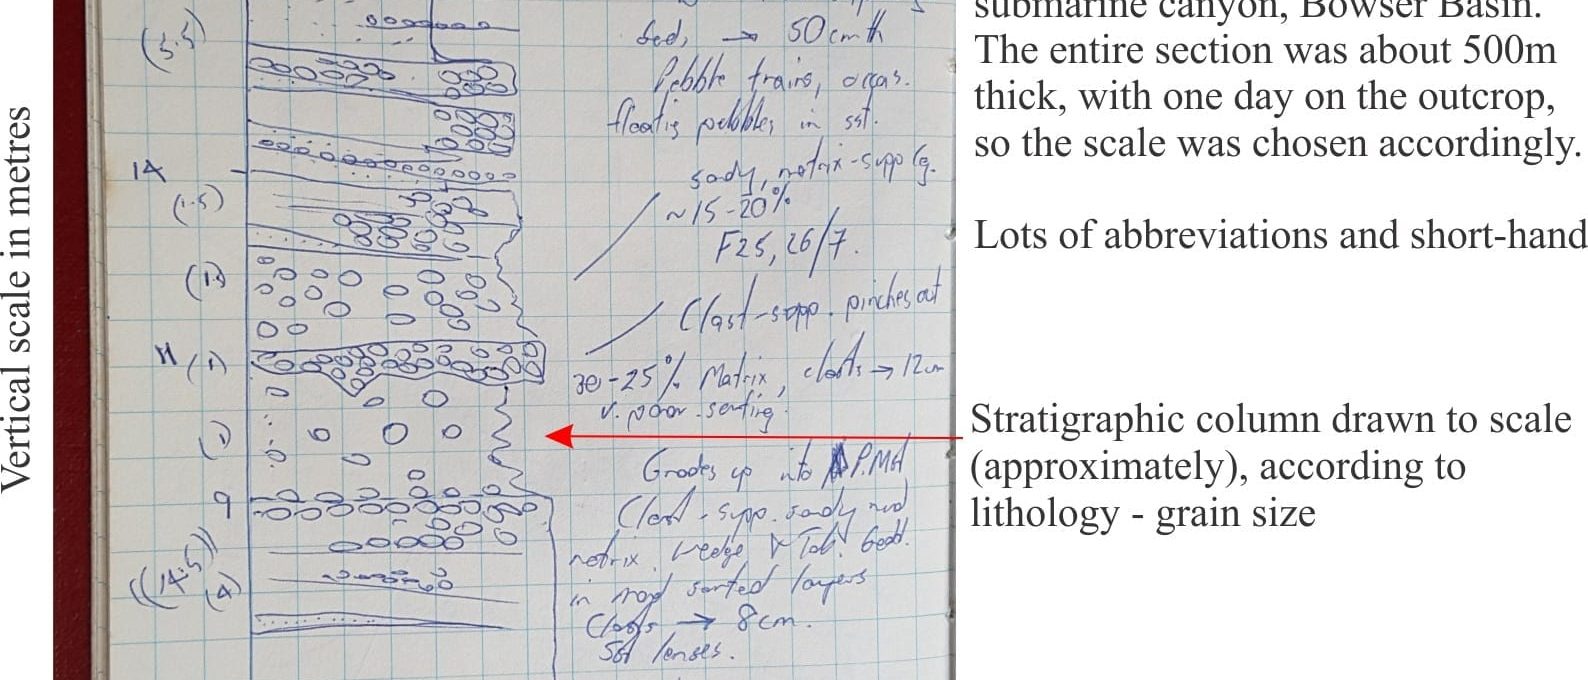 submarine canyon, Bowser Basin.
The entire section was about 500m
thick, with one day on the outcrop,
so the scale was chosen accordingly.
Lots of abbreviations and short-hand
Stratigraphic column drawn to scale
(approximately), according to
lithology - grain size
Vertical scale in metres
(3.5)
14
(1.5)
11 (1)
(1)
9
((14.5)
(4)
bed, → 50cm th
Pebble trains, occas.
floatig pebbles in sst.
sady, matrix-supp
~15-20%
F25, 26/7.
Clast-supp. pinches out
-25% Matrix, clasts → 12cm
v. poor sorting
Grades up into P.Mst
Clast-supp. sandy mud
matrix. Wedge & Tab.
in mod sorted layers
Clasts → 8cm.
Sst lenses.